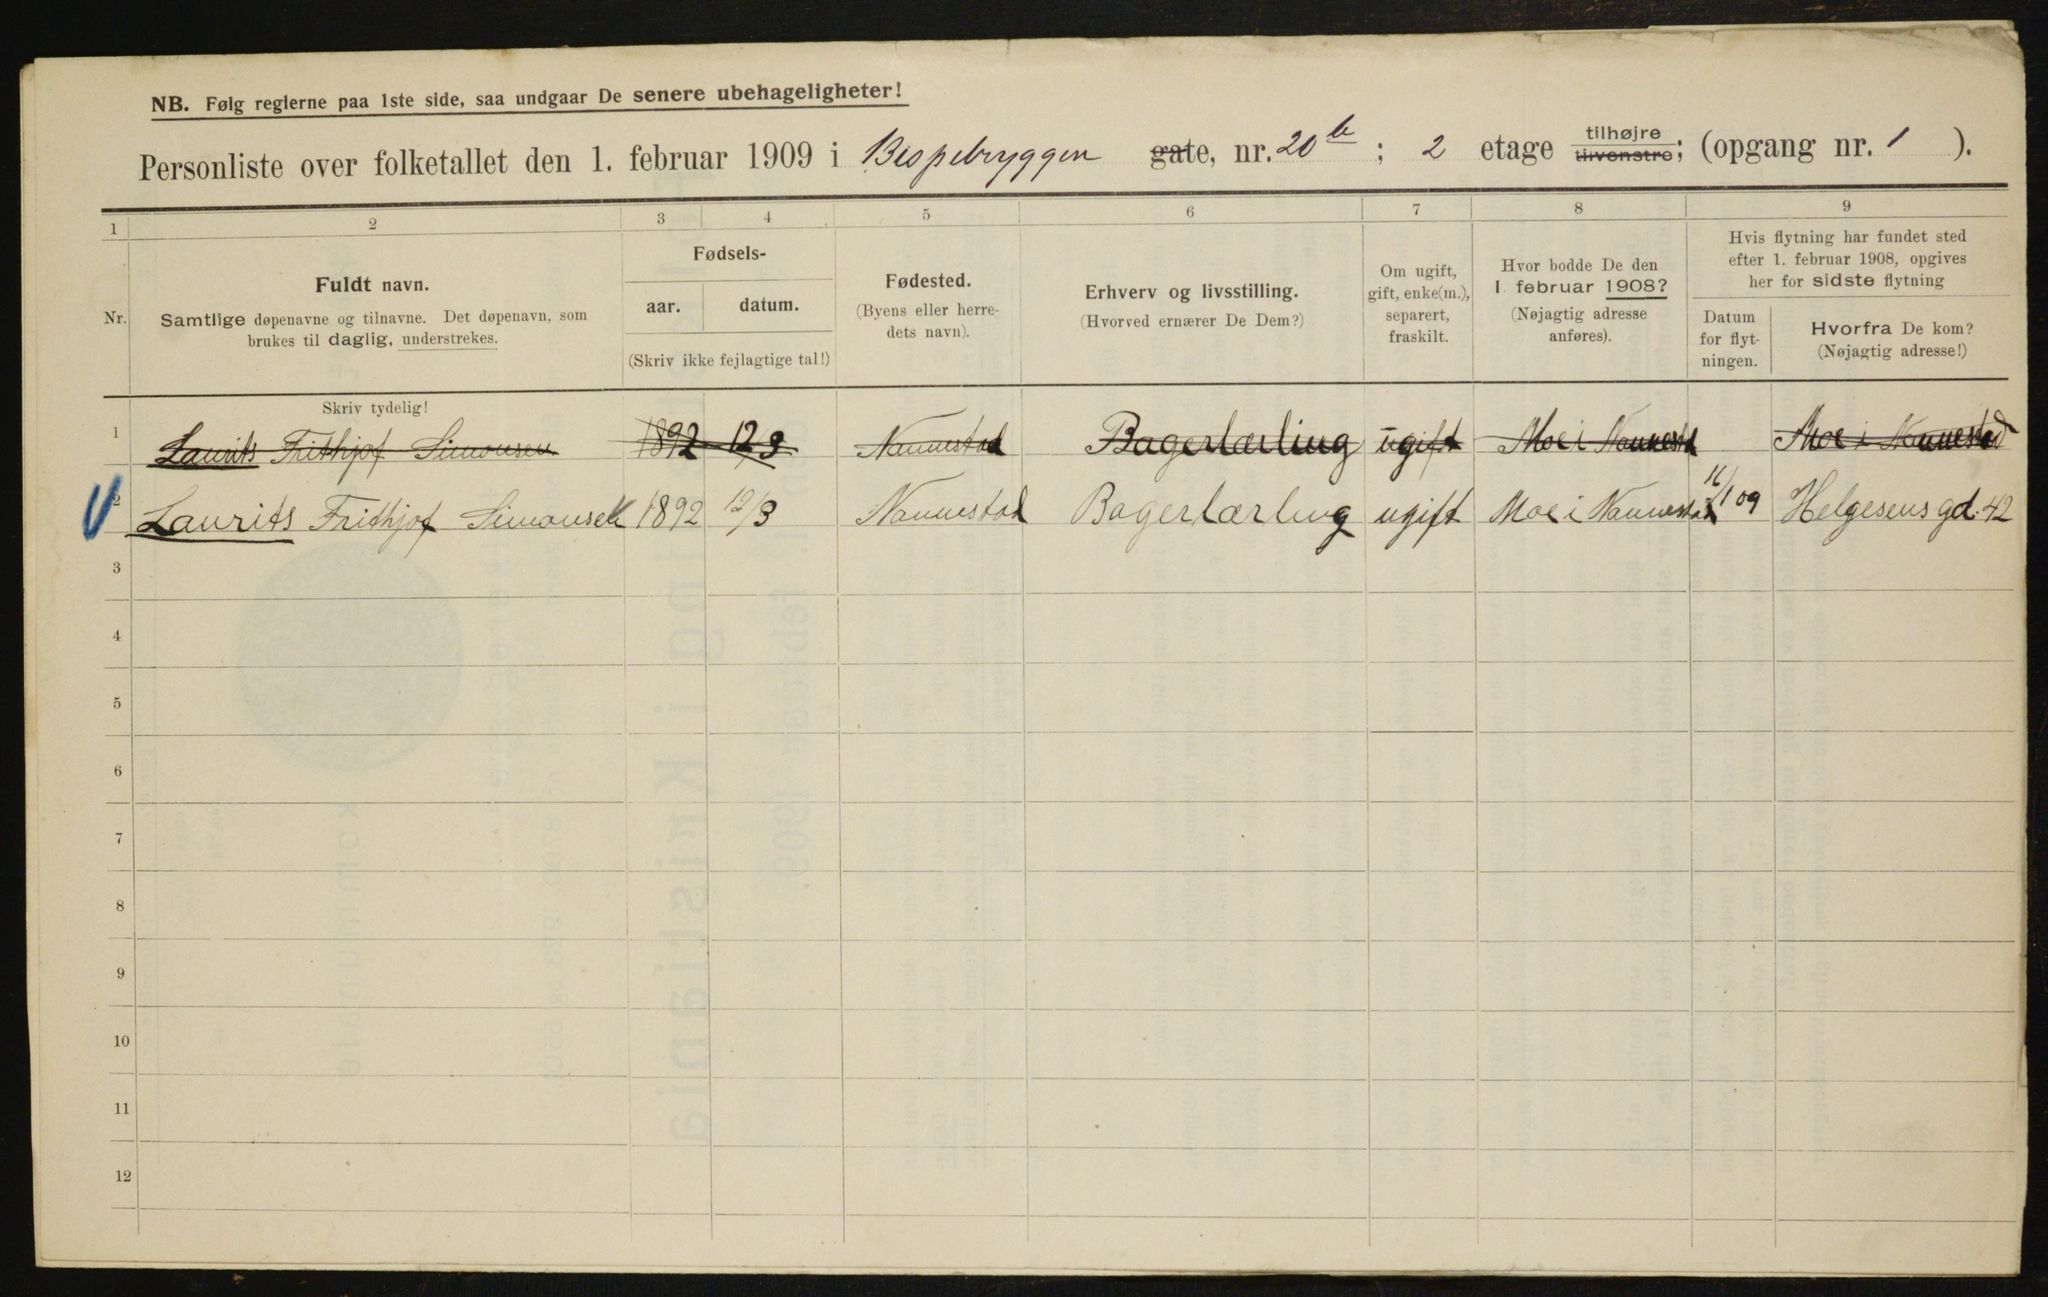 NB. Følg reglerne paa 1ste side, saa undgaar De senere ubehageligheter!
Personliste over folketallet den 1. februar 1909 i Bispebryggen gate, nr. 20 b ; 2 etage tilhøjre tilvenstre; (opgang nr. 1 ).
1 2 3 4 5 6 7 8 9
Nr.
Fuldt navn.
Samtlige døpenavne og tilnavne. Det døpenavn, som
brukes til daglig, understrekes.
Skriv tydelig!
Fødsels-
aar. datum.
(Skriv ikke fejlagtige tal!)
Fødested.
(Byens eller herre-
dets navn).
Erhverv og livsstilling.
(Hvorved ernærer De Dem?)
Om ugift,
gift, enke(m.),
separert,
fraskilt.
Hvor bodde De den
1. februar 1908?
(Nøjagtig adresse
anføres).
Hvis flytning har fundet sted
efter 1. februar 1908, opgives
her for sidste flytning
Datum
for flyt-
ningen.
Hvorfra De kom?
(Nøjagtig adresse!)
1 Laurits Frithjof Simonsen 1892 12/3 Nannestad Bagerlærling ugift Moe i Nannestd Moe i Nannestad
2 Laurits Frithjof Simonsen 1892 12/3 Nannestad Bagerlærling ugift Moe i Nannestad 16/1 09 Helgesens gd. 42
3
4
5
6
7
8
9
10
11
12